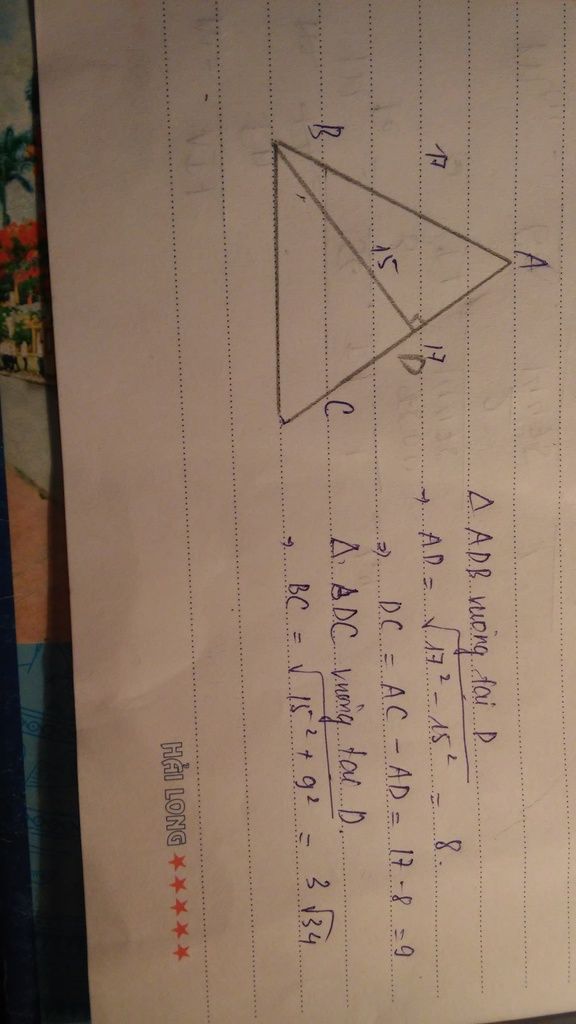 A
17
B
15
17
D
C
Δ ADB vuông tại D
→ AD = √17² - 15² = 8.
⇒ DC = AC - AD = 17 - 8 = 9
Δ BDC vuông tại D.
→ BC = √15² + 9² = 3√34
HẢI LONG ★★★★★